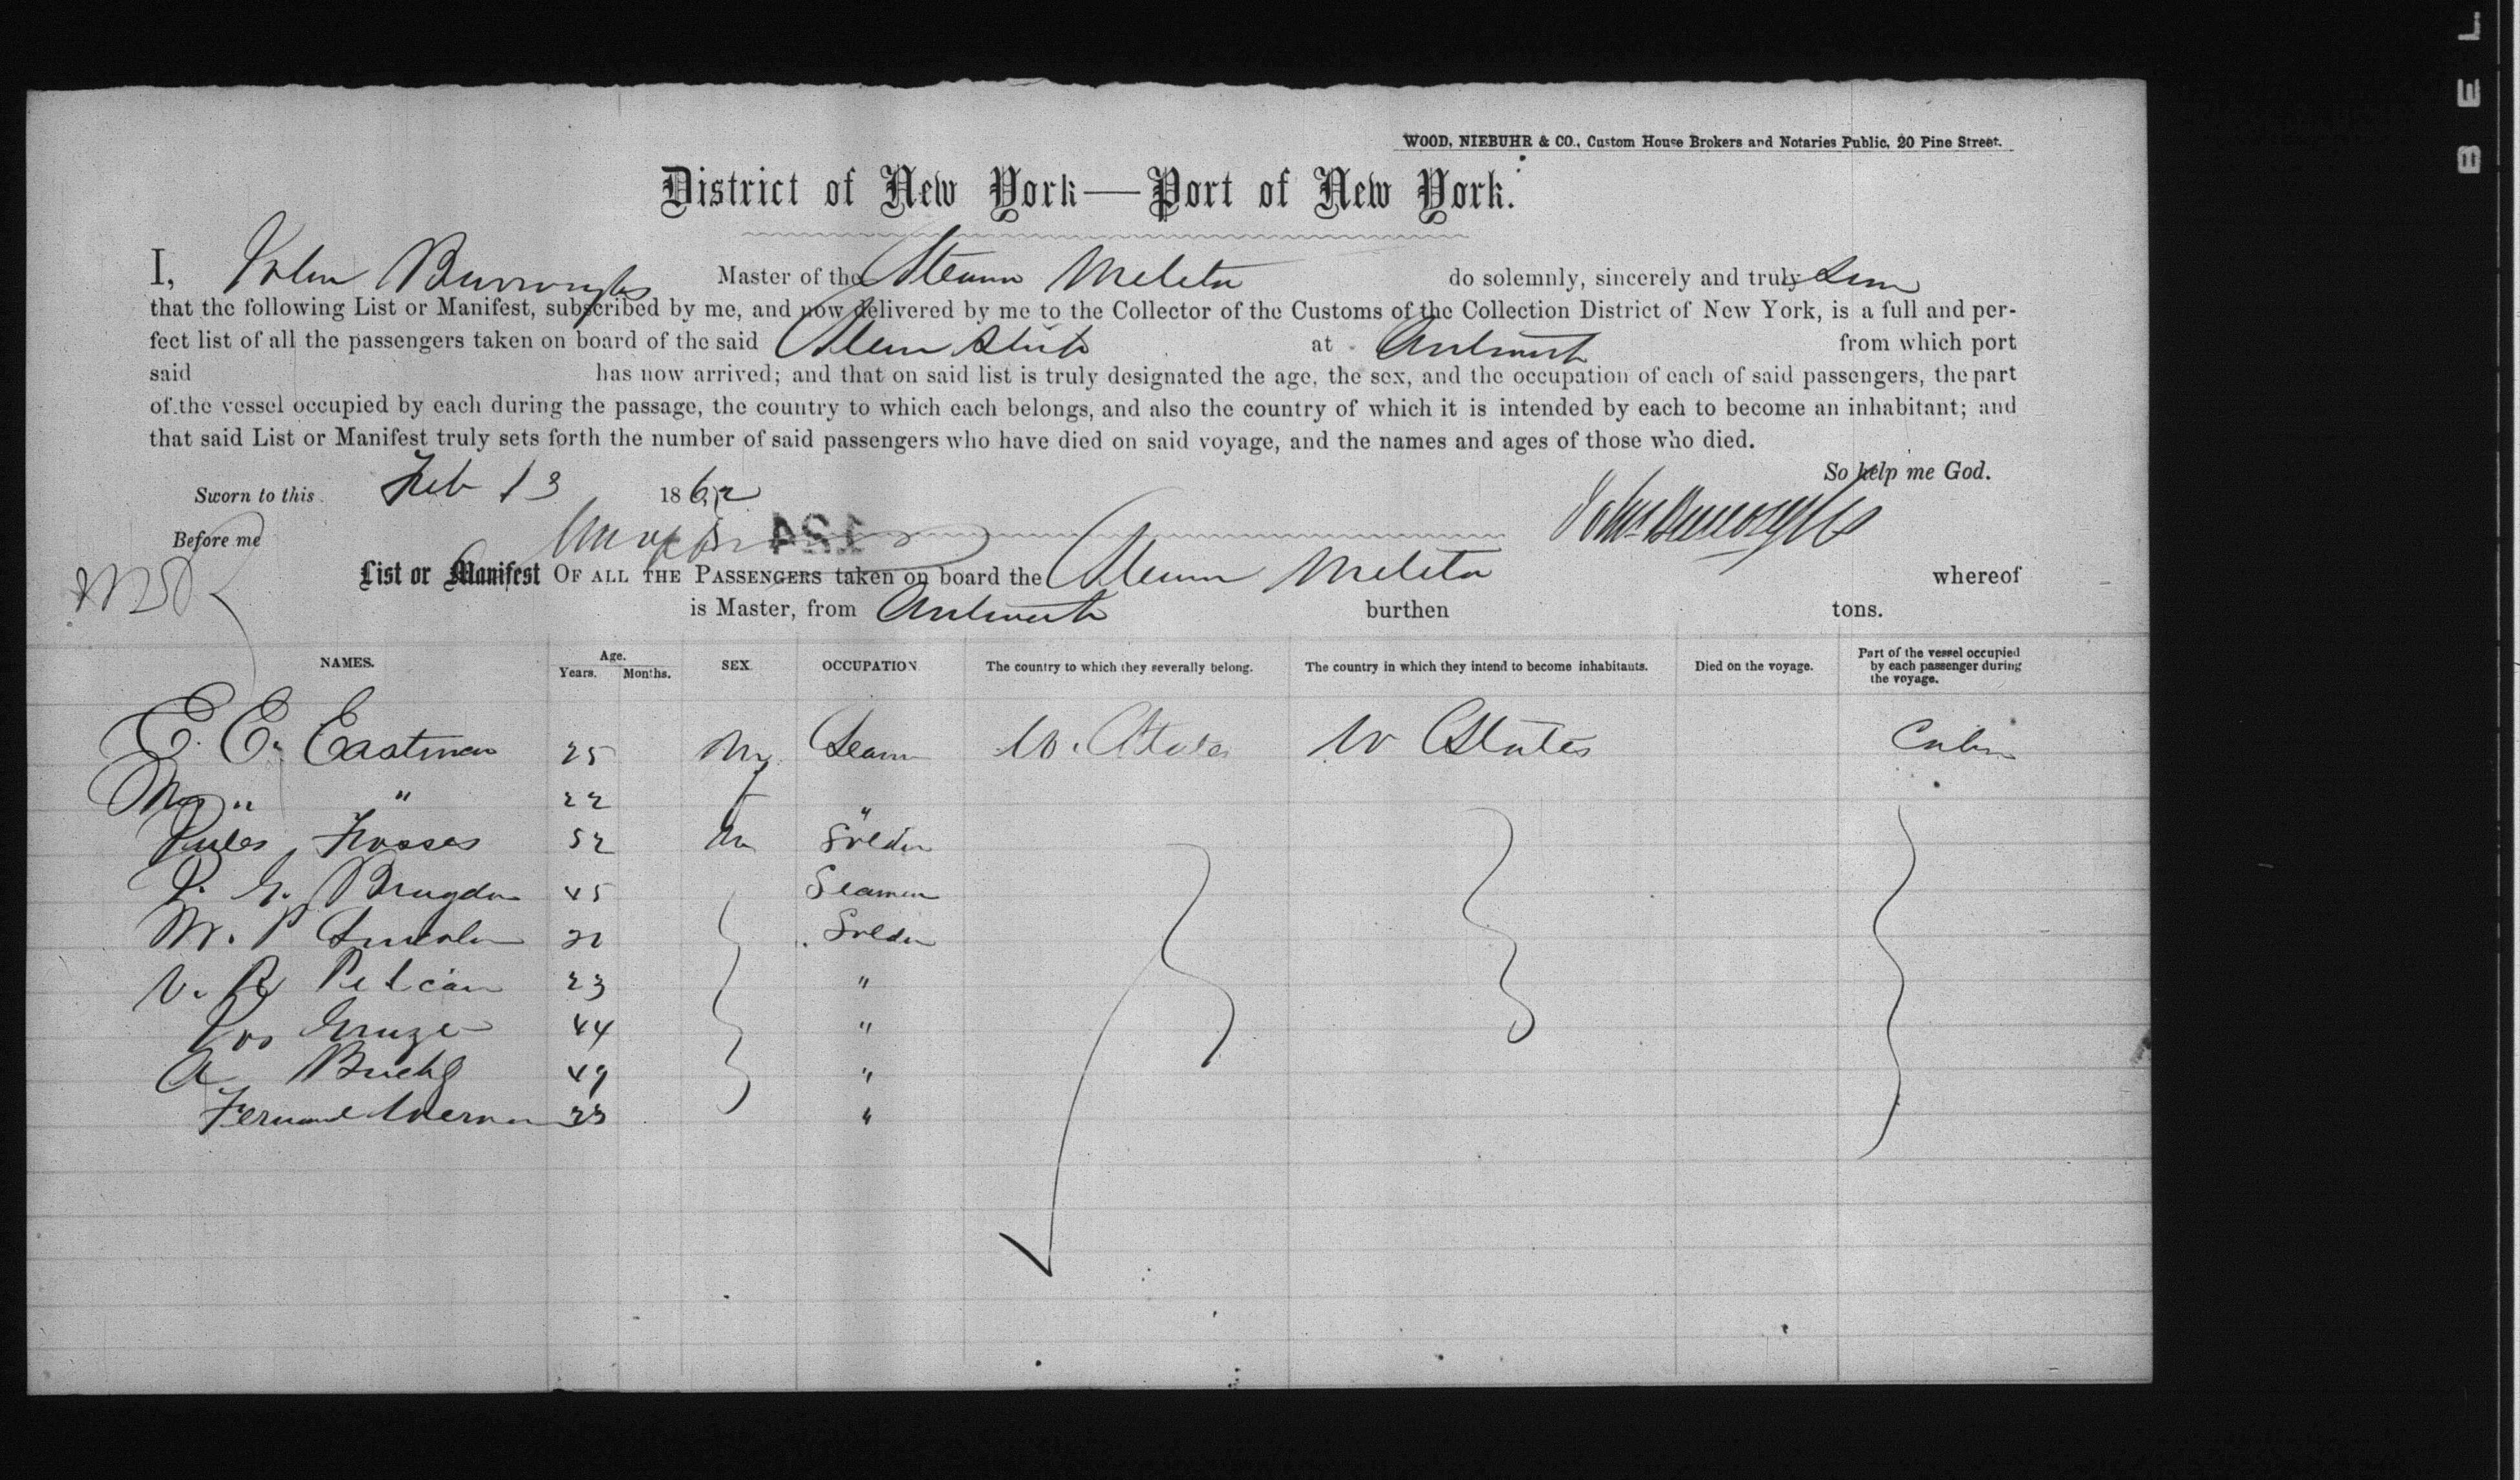 BEL
WOOD, NIEBUHR & CO., Custom House Brokers and Notaries Public, 20 Pine Street.
District of New York—Port of New York.
I, John Burroughs Master of the Steam Melita do solemnly, sincerely and truly
that the following List or Manifest, subscribed by me, and now delivered by me to the Collector of the Customs of the Collection District of New York, is a full and per-
fect list of all the passengers taken on board of the said Steam Ship at from which port
said has now arrived; and that on said list is truly designated the age, the sex, and the occupation of each of said passengers, the part
of the vessel occupied by each during the passage, the country to which each belongs, and also the country of which it is intended by each to become an inhabitant; and
that said List or Manifest truly sets forth the number of said passengers who have died on said voyage, and the names and ages of those who died.
So help me God.
Sworn to this Feb 13 1862
John Burroughs
124
Before me
List or Manifest OF ALL THE PASSENGERS taken on board the Steam Melita whereof
is Master, from burthen tons.
NAMES. Age. Years. Months. SEX. OCCUPATION. The country to which they severally belong. The country in which they intend to become inhabitants. Died on the voyage. Part of the vessel occupied by each passenger during the voyage.
E. E. Eastman 25 M U. States U States Cabin
" " 22 f "
Jules 52 M
45 Seaman
M. P Lincoln
V. R 23 "
Jos 44 "
A 49 "
"